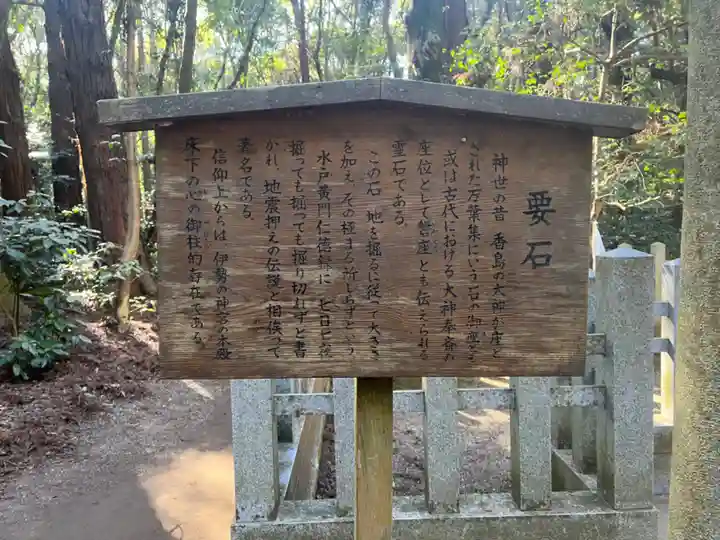 要石
神世の昔 香島の大神が座と
された万葉集にいう石の御座と
或は古代における大神奉斎の
座位として磐座とも伝えられる
霊石である。
この石 地を掘るに従って大きさ
を加え、その極まる所しらずという
水戸黄門仁徳録に 七日七夜
掘っても掘っても掘り切れずと書
かれ、地震押えの伝説と相俟って
著名である。
信仰上からは、伊勢の神宮の本殿
床下の心の御柱的存在である。